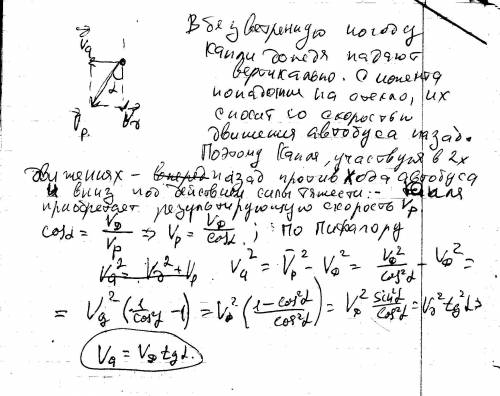 В безветренную погоду
капли дождя падают
вертикально. С момента
попадания на стекло, их
сносит со скоростью
движения автобуса назад.
Поэтому капля, участвуя в 2х
движениях - назад против хода автобуса
и вниз под действием силы тяжести:- капля
приобретает результирующую скорость Vр.
cosα = Vд/Vр => Vр = Vд/cosα ; По Пифагору
Vа² = Vд² + Vр Vа² = Vр² - Vд² = Vд²/cos²α - Vд² =
= Vд² (1/cos²α - 1) = Vд² (1-cos²α/cos²α) = Vд² sin²α/cos²α = Vд² tg²α =>
Vа = Vд tgα.
Vа
α
Vр
Vд